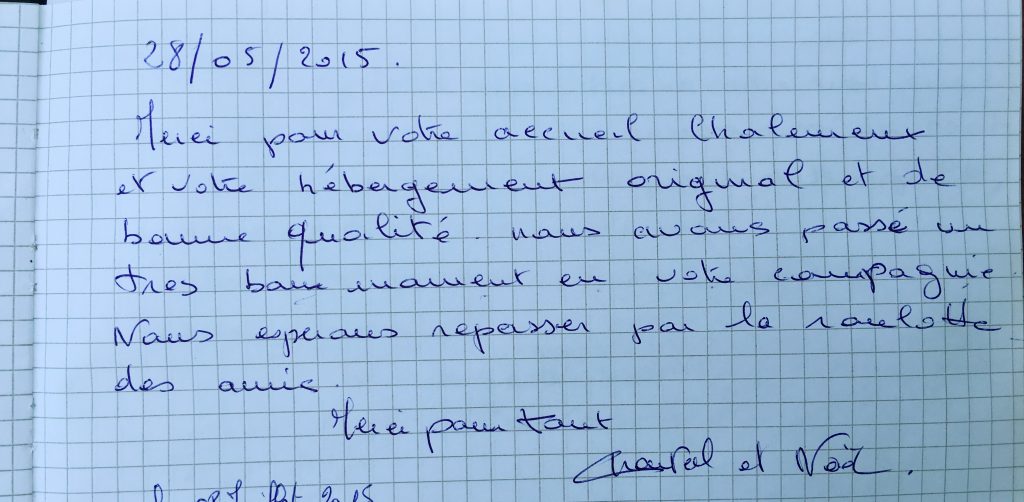 28/05/2015.
Merci pour votre accueil Chaleureux
et votre hébergement original et de
bonne qualité. nous avons passé un
tres bon moment en votre compagnie.
Nous esperons repasser par la roulotte
des amis.
Merci pour tout
Chantal et Noël.
2015